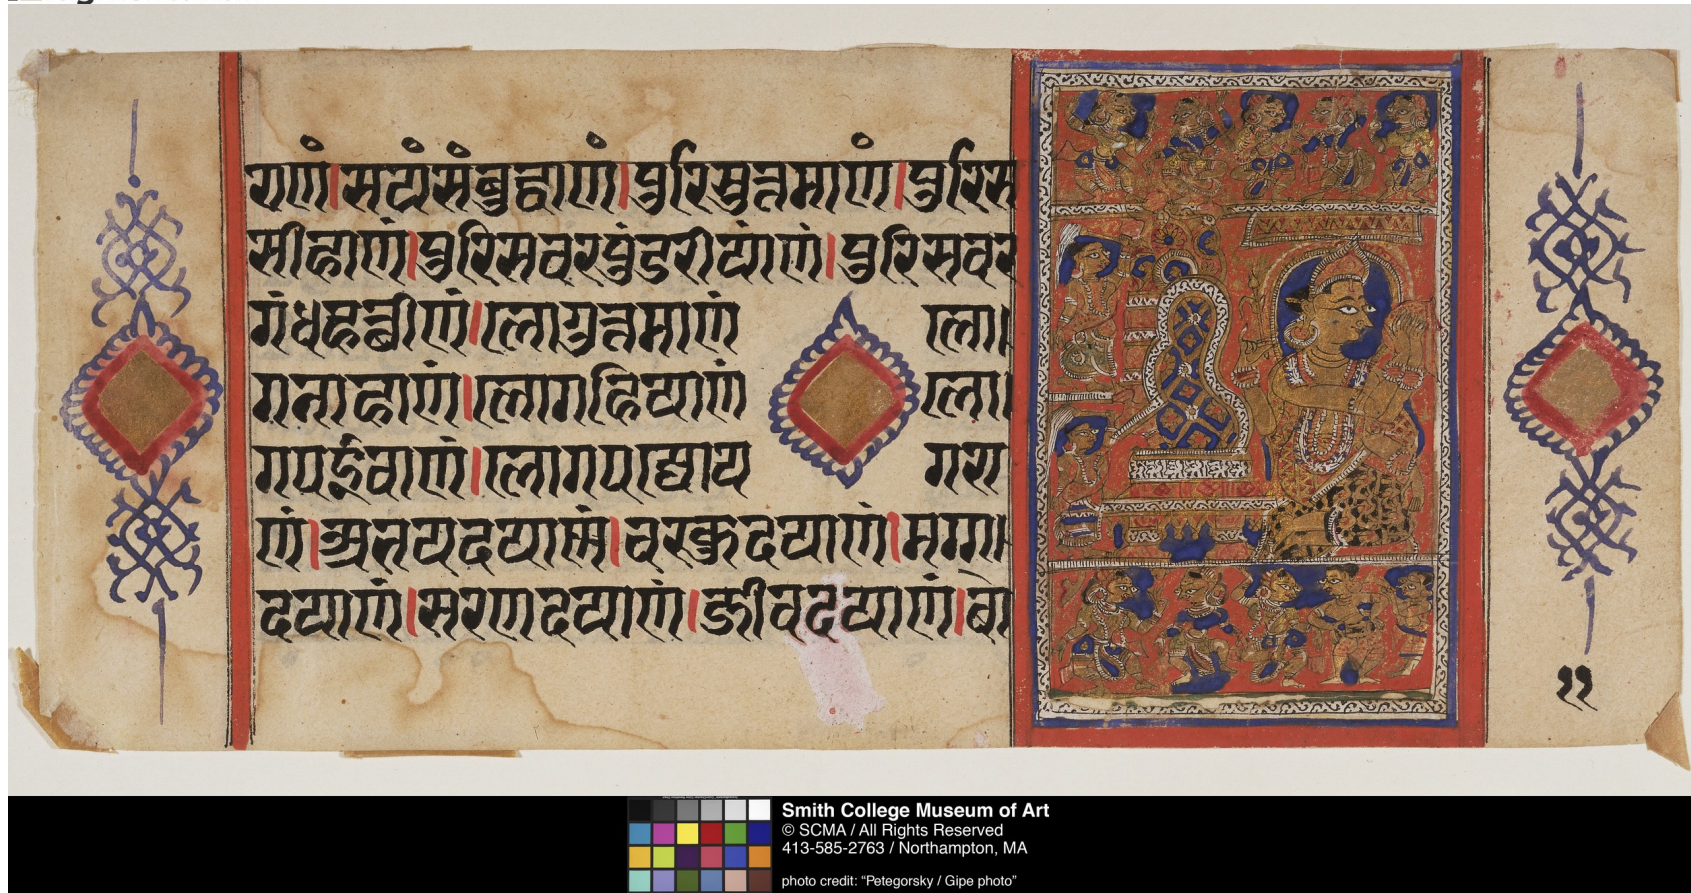 गराणं।सयंसंबुद्धाणं।पुरिसुत्तमाणं।पुरिस
सीहाणं।पुरिसवरपुंडरीयाणं।पुरिसवर
गंधहत्थीणं।लोगुत्तमाणं लो
गनाहाणं।लोगहियाणं लो
गपईवाणं।लोगपज्जोय गरा
णं।अभयदयाणं।चरकुदयाणं।मग्ग
दयाणं।सरणदयाणं।जीवदयाणं।बो
११
Smith College Museum of Art
© SCMA / All Rights Reserved
413-585-2763 / Northampton, MA
photo credit: “Petegorsky / Gipe photo”